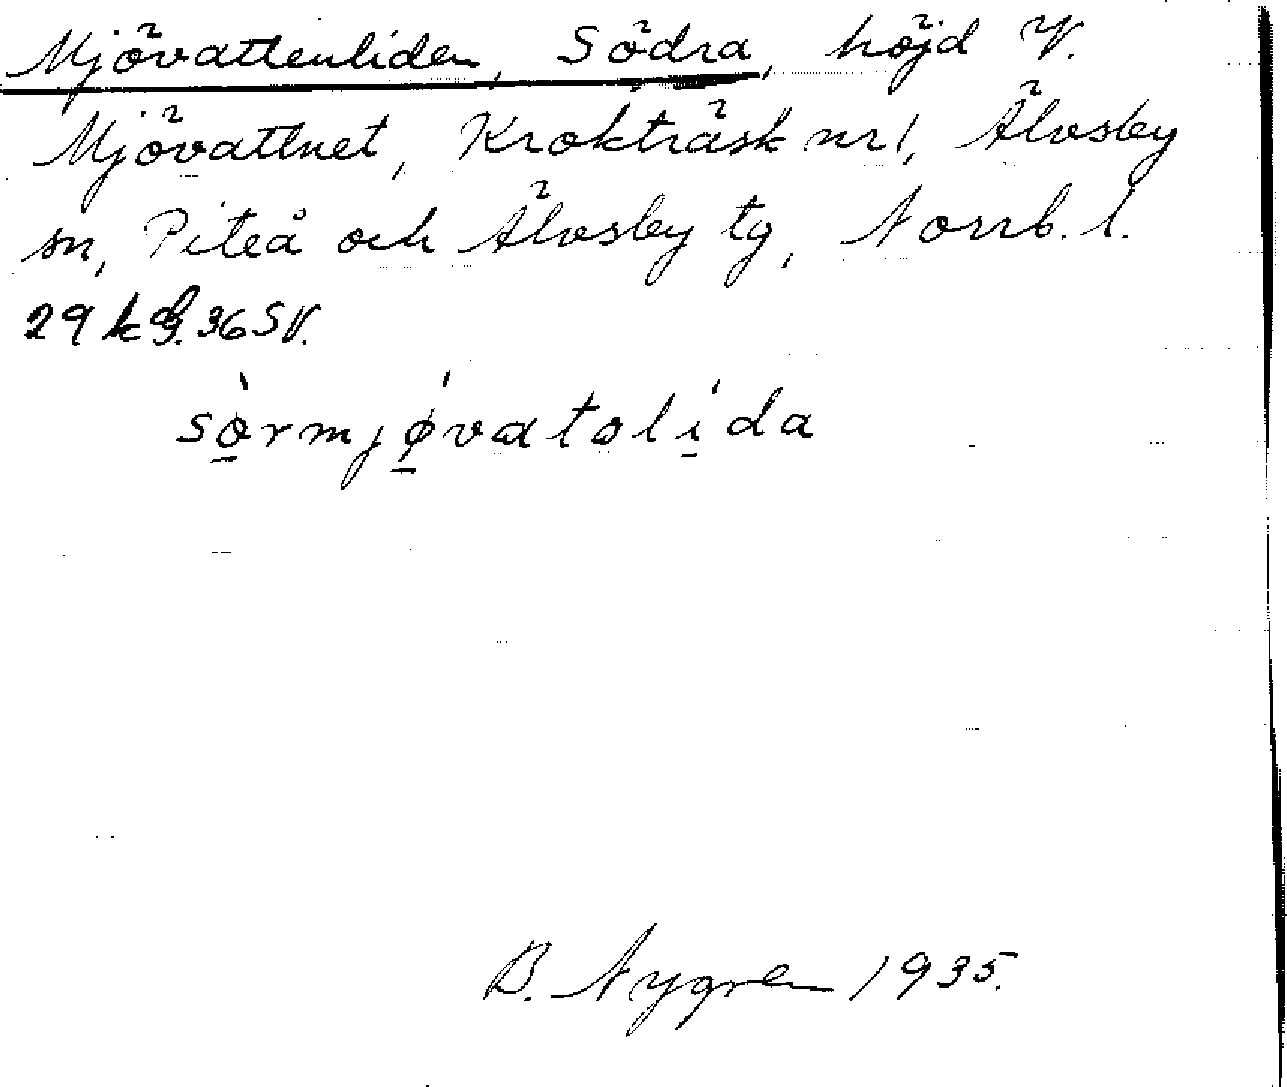 Mjövattenliden, Södra, höjd V.
Mjövattnet, Krokträsk nr 1, Älvsby
sn, Piteå och Älvsby tg, Norrb. l.
29 36 SV.
sørmjøvatolida
B. Nygren 1935.